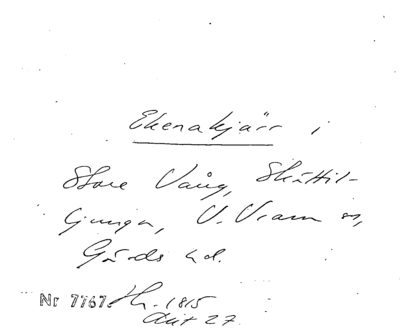 Ekenakjärr i
Store Vång, Skättil-
ljunga, V. Vram sn,
Gärds hd.
Nr 7767. Sk. 1815
Akt 27